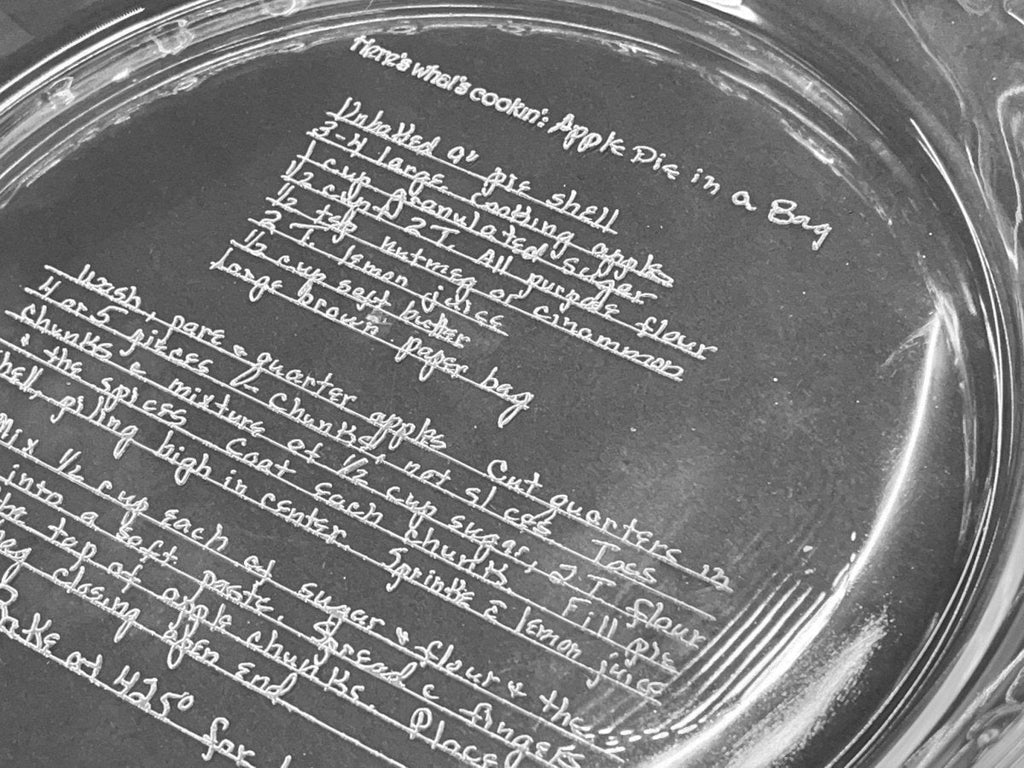 Here's what's cookin': Apple Pie in a Bag
1 Unbaked 9" pie shell
3-4 large cooking apples
1 cup granulated sugar
1/2 cup & 2 T. All purpose flour
1/2 tsp nutmeg or cinammon
2 T. lemon juice
1/2 cup soft butter
large brown paper bag
Wash, pare & quarter apples. Cut quarters in
4 or 5 pieces - "chunks", not slices. Toss
chunks c mixture of 1/2 cup sugar, 2 T flour
& the spices. Coat each chunk. Fill pie
shell, piling high in center. Sprinkle c lemon juice
Mix 1/2 cup each of sugar & flour & the
into a soft paste. Spread c fingers
the top of apple chunks. Place
bag closing open end.
Bake at 425° for